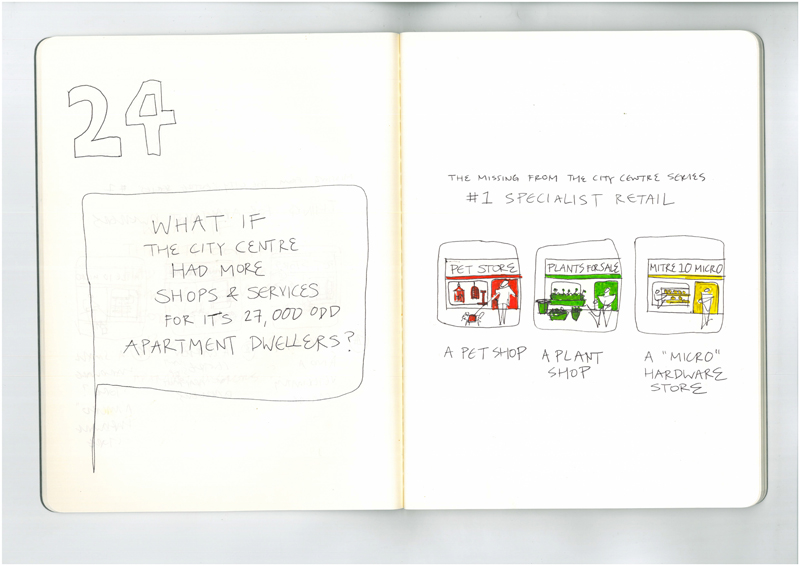 24
WHAT IF
THE CITY CENTRE
HAD MORE
SHOPS & SERVICES
FOR IT'S 27,000 ODD
APARTMENT DWELLERS?
THE MISSING FROM THE CITY CENTRE SERIES
#1 SPECIALIST RETAIL
PET STORE
PLANTS FOR SALE
MITRE 10 MICRO
A PET SHOP
A PLANT
SHOP
A "MICRO"
HARDWARE
STORE